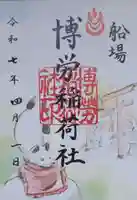 船場
博労稲荷社
令和七年四月一日